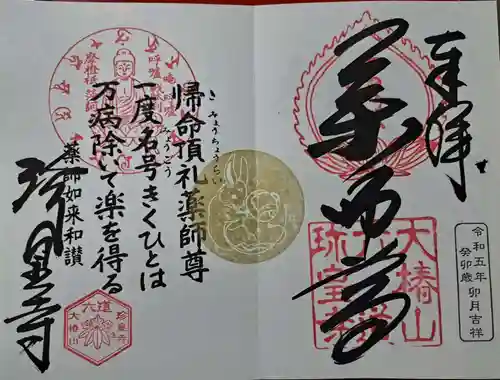 奉拝
薬師尊
大椿山
六道
珍皇寺
令和五年
癸卯歳 卯月吉祥
帰命頂礼薬師尊
き みょうちょうらい
一度名号きくひとは
みょうごう
万病除いて楽を得る
薬師如来和讃
珍皇寺
六道
珍皇寺
大椿山